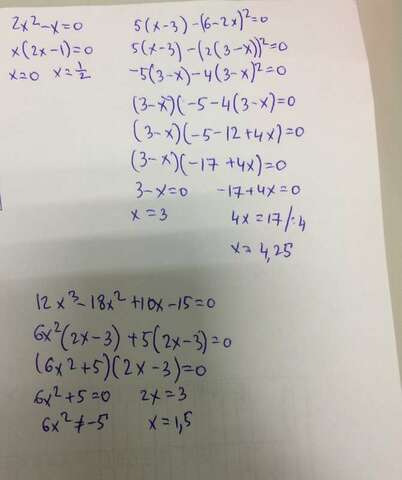 2x²-x=0
x(2x-1)=0
x=0 x=1/2
5(x-3)-(6-2x)²=0
5(x-3)-(2(3-x))²=0
-5(3-x)-4(3-x)²=0
(3-x)(-5-4(3-x)=0
(3-x)(-5-12+4x)=0
(3-x)(-17+4x)=0
3-x=0 -17+4x=0
x=3 4x=17/:4
x=4,25
12x³-18x²+10x-15=0
6x²(2x-3)+5(2x-3)=0
(6x²+5)(2x-3)=0
6x²+5=0 2x=3
6x²≠-5 x=1,5